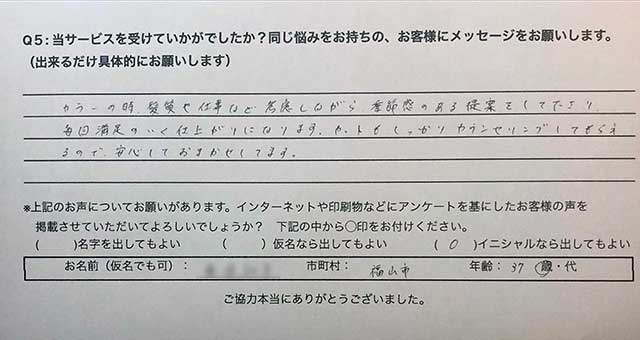 Q5:当サービスを受けていかがでしたか?同じ悩みをお持ちの、お客様にメッセージをお願いします。
(出来るだけ具体的にお願いします)
カラーの時、髪質や仕事など考慮しながら、季節感のある提案をしてくださり、
毎回満足のいく仕上がりになります。カットもしっかりカウンセリングしてもらえ
るので、安心しておまかせしてます。
※上記のお声についてお願いがあります。インターネットや印刷物などにアンケートを基にしたお客様の声を
掲載させていただいてよろしいでしょうか? 下記の中から○印をお付けください。
( )名字を出してもよい ( )仮名なら出してもよい ( O )イニシャルなら出してもよい
お名前(仮名でも可): 市町村: 福山市 年齢: 37 歳・代
ご協力本当にありがとうございました。